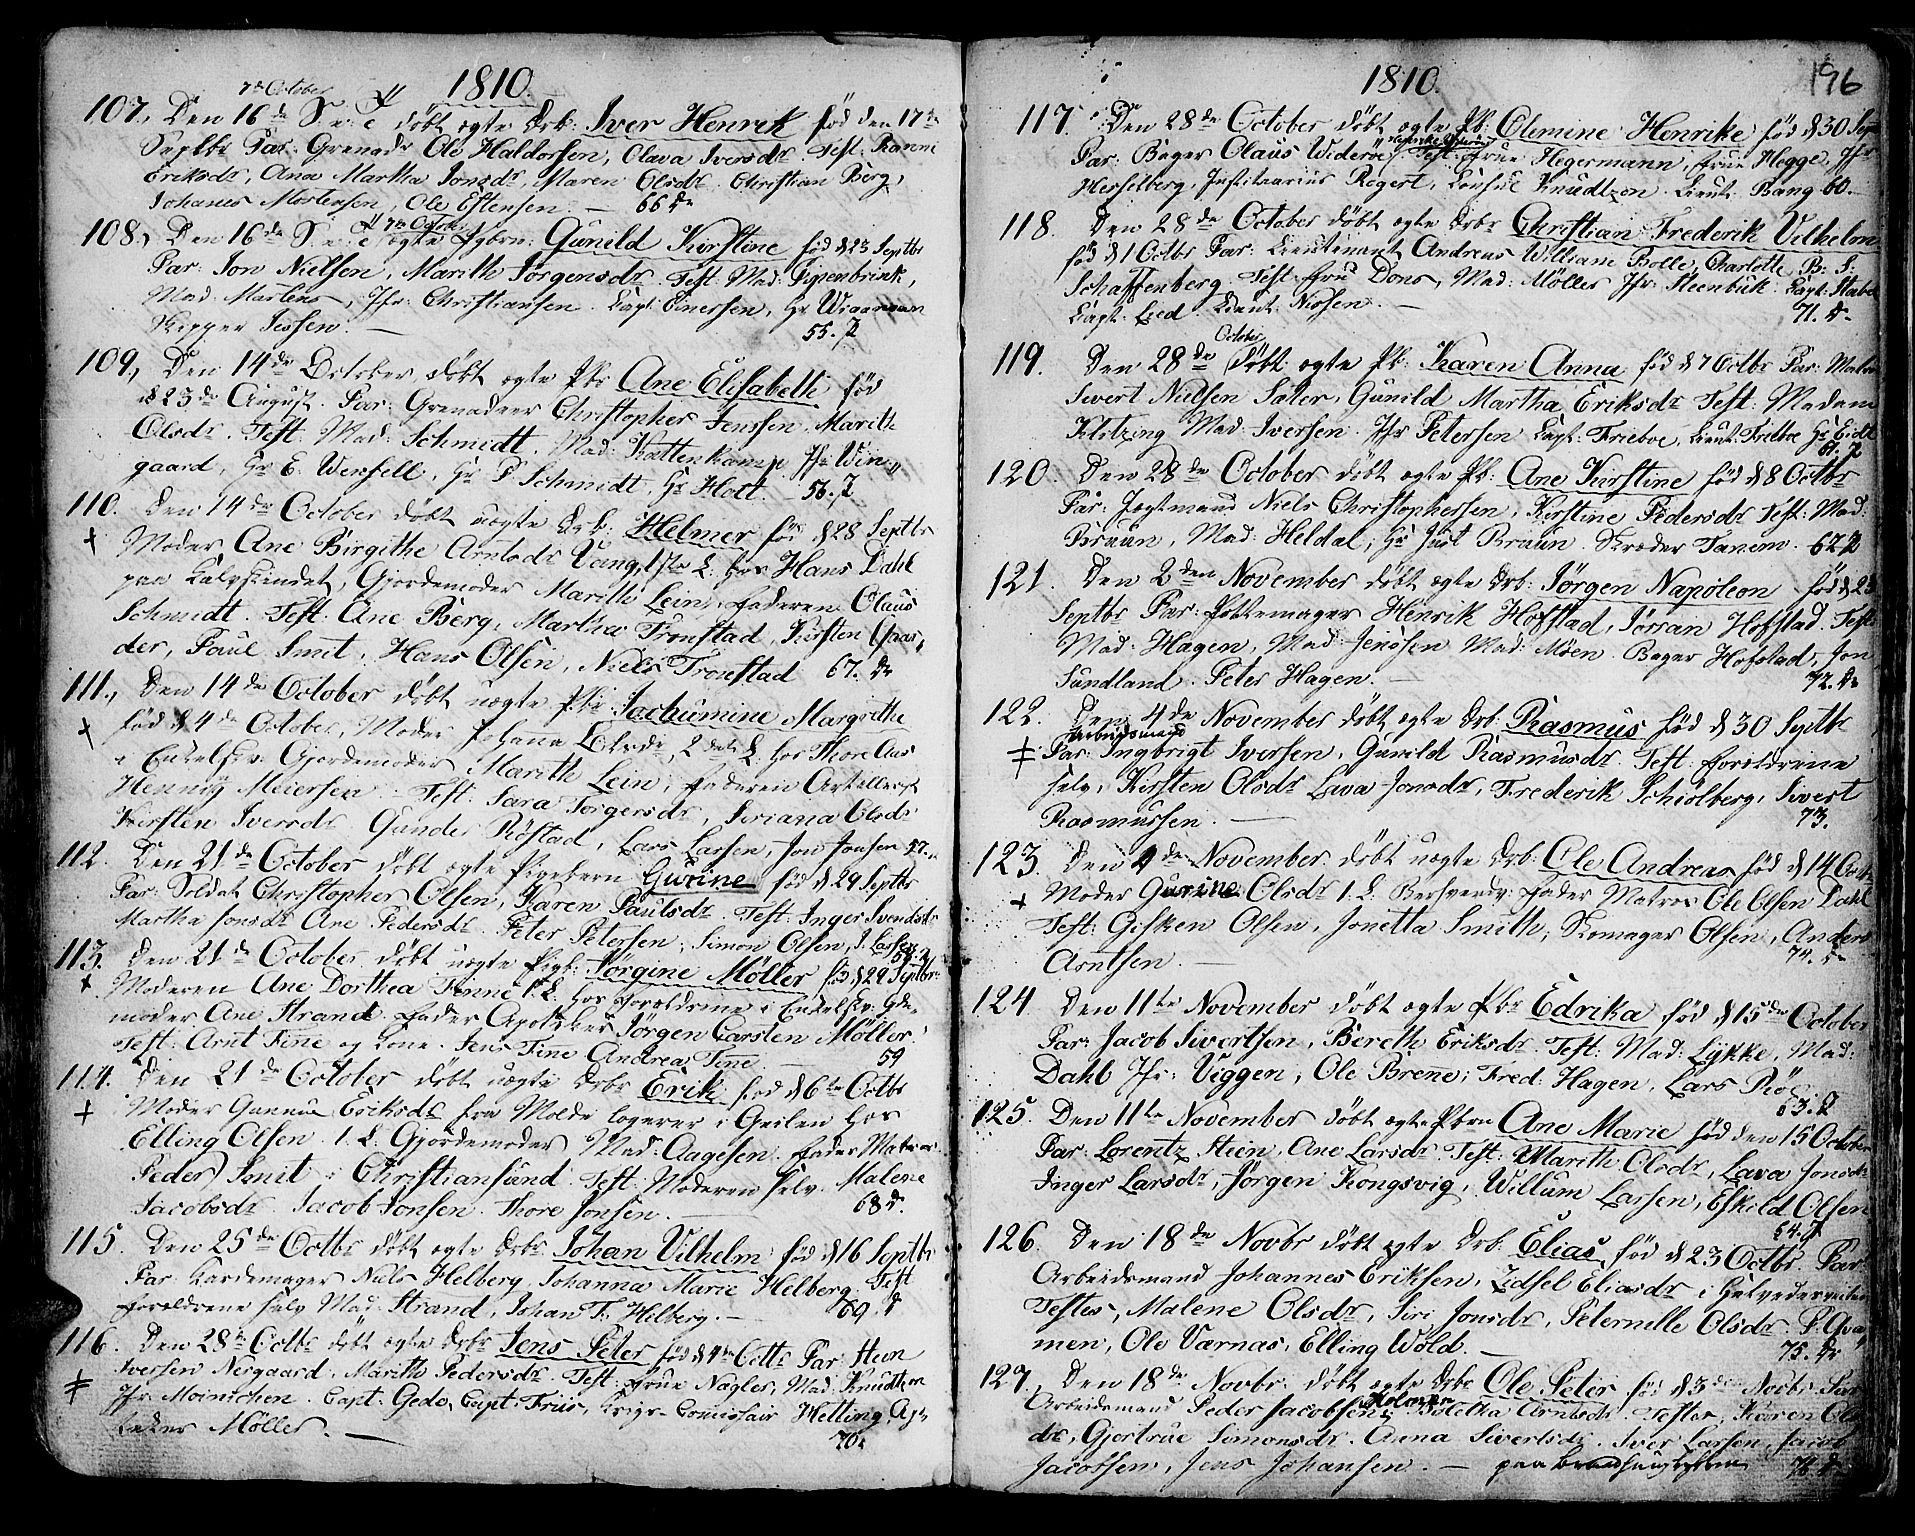 1810.
7de October
107, Den 16de S. e. T döbt ægte Drb: Iver Henrik fød den 17de
Septbr Far: Grenadr Ole Haldorsen, Olava Iversdr. Test: Ranni
Eriksdr, Ana Martha Jonsdr, Maren Olsdr. Christian Berg,
Johanes Mortensen, Ole Estensen — 66 Dr
7de Octobr
108, Den 16de S. e. T ægte Pgbrn: Gunild Kirstine fød d 23 Septbr
Far: Jon Nielsen, Marith Jörgensdr. Test: Mad: Piipenbrink,
Mad: Martens, Jfr: Christiansen. Capt: Einersen, Hr Wigaman
Skipper Jessen. — 55. P
109, Den 14de October döbt ægte Pbr Ane Elisabeth fød
d 23de August. Far: Grenadeer Christopher Jenssen. Marith
Olsdr. Test: Mad: Schmidt, Mad: Kattenkamp Jfr: Win-
gaard, Hr E. Wensell, Hr P Schmidt, Hr Hott. — 56. P
110. Den 14de October döbt uægte Drb: Helmer fød d 28 Septbr
+ Moder Ane Birgithe Arntsdr Vang, 1ste L. hos Hans Dahl
paa Kalvskindet, Gjordemoder Marith Lein, Faderen Claus
Schmidt. Test: Ane Berg, Martha Tronstad, Kirsten Gaar-
der, Paul Smit, Hans Olsen, Niels Tronstad 67. Dr
111., Den 14de October döbt uægte Pbr: Jachumine Margrethe
+ fød d 4de October, Moder Johana Olsdr, 2det L. hos Thore Aas
i Enkelsk. Gjordemoder Marith Lein, Faderen Artillerist
Henrich Meiersen. Test: Sara Jörgersdr, Siriana Olsdr
Kirsten Iversdr. Gunder Röstad, Lars Larsen, Jon Jonsen 57.
112. Den 21de October döbt ægte Pigebarn Gurine fød d 29 Septbr
Far: Soldat Christopher Olsen, Karen Paulsdr. Test: Inger Svendsdr
Martha Jonsdr Ane Pedersdr. Peter Petersen, Simon Olsen, J. Larsen
58. P
113. Den 21de October döbt uægte Pigb: Jörgine Möller fød d 29 Septbr
+ Moderen Ane Dorthea Finne 1. L. hos Foreldrene i Enkelsk. Gde-
moder Ane Strand Fader Apotheker Jörgen Carsten Möller.
Test: Arnt Fine og Kone. Jens Fine Andreas Fine — 59
114. Den 21de October döbt uægte Drbr Erik fød d 6te Octbr
+ Moder Gunnil Eriksdr fra Molde logerer i Geilen hos
Elling Olsen. 1. L. Gjordemoder Mad: Aagesen. Fader Matros
Peder Smit i Christiansund. Test: Moderen selv. Malene
Jacobsdr. Jacob Jonsen. Thore Jonsen. — 68 d.
115. Den 25de Octbr döbt ægte Drbr Johan Vilhelm fød d 16 Septbr
Far: Kardemager Niels Helberg, Johanna Marie Helberg. Test
Foreldrene selv Mad: Strand, Johan F. Helberg. — 69. d
116. Den 28de Octbr döbt ægte Drbr Jens Peter fød d 4de Octbr Far: Hein
Iversen Nesgaard. Marith Pedersdr. Test: Frue Nagler, Mad: Knudtzon
Jfr: Moinichen. Capt: Gede, Capt: Friis, Krigs-Comissair Hetting Apo-
teker Möller. — 70.
196
1810.
117. Den 28de October döbt ægte Pb: Clemene Henrike fød d 30 Sept
Far: Bager Claus Wideröe, Test: Frue Hegermann, Frue Hegge, Jfr
Hersleberg, Justitiarius Rogert, Consul Knudtzon. Lieut: Bang 60.
118. Den 28de October döbt ægte Drbr Christian Frederik Vilhelm
fød d 1 Octbr Far: Lieutenant Andreas William Bolle, Charlotte B: S:
Schaffenberg. Test: Fru Dons, Mad: Möller Jfr: Steenbuk. Capt: Stabel
Capt: Lied. Lieut: Nissen. — 71. Dr
119. Den 28de October döbt ægte Pb: Karen Anna fød d 7 Octbr Far: Mator
Sivert Nielsen Sater, Gunild Martha Eriksdr Test: Madam
Klitzing Mad: Iversen. Jfr Petersen Capt: Frieboe, Lieut: Frieboe Hr Eidt
61. P
120. Den 28de October döbt ægte Pb: Ane Kirstine fød d 8 Octbr
Far: Jegtmand Niels Christophersen, Kirstine Pedersdr Test: Mad:
Bruun, Mad: Heldal, Hr Just Bruun. Skreder Tanem. 62 P
121. Den 2den November döbt ægte Drb: Jörgen Napoleon fød d 23
Septbr Far: Pottemager Henrik Hofstad, Jörran Hofstad. Test:
Mad: Hagen, Mad: Jensen Mad: Möen. Bager Hofstad, Jon
Sundland. Peter Hagen. — 72. Dr
122. Den 4de November döbt ægte Drb: Rasmus fød d 30 Septbr
Arbeidsmand
Far: Ingbrigt Iversen, Gunild Rasmusdr Test: Foreldrene
selv, Kirsten Olsdr Lava Jonsdr, Frederik Schiölberg, Sivert
Rasmussen. — 73.
123. Den 4de November döbt uægte Drb: Ole Andreas fød d 14 Octbr
+ Moder Gurine Olsdr 1. L. Fader Matros Ole Olsen Dahl
Test: Gisken Olsen, Jonetta Smith, Skomager Olsen, Anders
Arntsen. — 74. Dr
124. Den 11te November döbt ægte Pbr Edrika fød d 15de October
Far: Jacob Sivertsen, Bereth Eriksdr. Test: Mad: Lykke, Mad:
Dahl Jfr: Viggen, Ole Brene, Fred: Hagen, Lars Röe
63. P
125. Den 11te November döbt ægte Pbrn Ane Marie fød den 15 October
Far: Lorentz Stien, Ane Larsdr. Test: Marith Olsdr, Lava Jonsdr
Inger Larsdr, Jörgen Kongsvig, Willum Larsen, Eskild Olsen
64. P
126. Den 18de Novbr döbt ægte Drb: Elias fød d 23 Octbr. Far:
Arbeidsmand Johannes Eriksen, Zidsel Eliasdr i
Testes, Malene Olsdr, Siri Jonsdr, Peternille Olsdr P. Qva-
men, Ole Værnas, Elling Wold. — 75. Dr
127. Den 18de Novbr: döbt ægte Drbr Ole Peter fød d 3de Novbr Far
Arbeidsmand Peder Jacobsen Holmen Boletha Arntsdr. Testes, Karen Ols-
dr, Gjertrue Simonsdr. Anna Sivertsdr. Iver Larsen, Jacob
Jacobsen, Jens Johansen. — paa 76. Dr